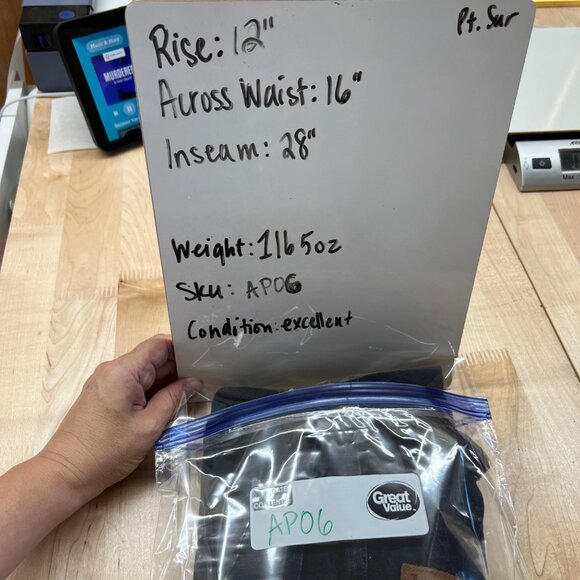 Pt. Sur
Rise: 12"
Across Waist: 16"
Inseam: 28"
Weight: 1lb 5oz
Sku: AP06
Condition: excellent
Music & More
MURDERE
Max
Great
Value
AP06